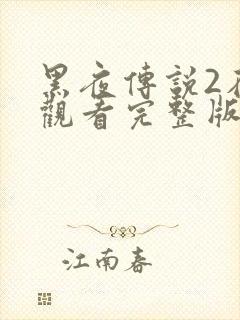 黑夜傳説2
觀看完整版
江南春